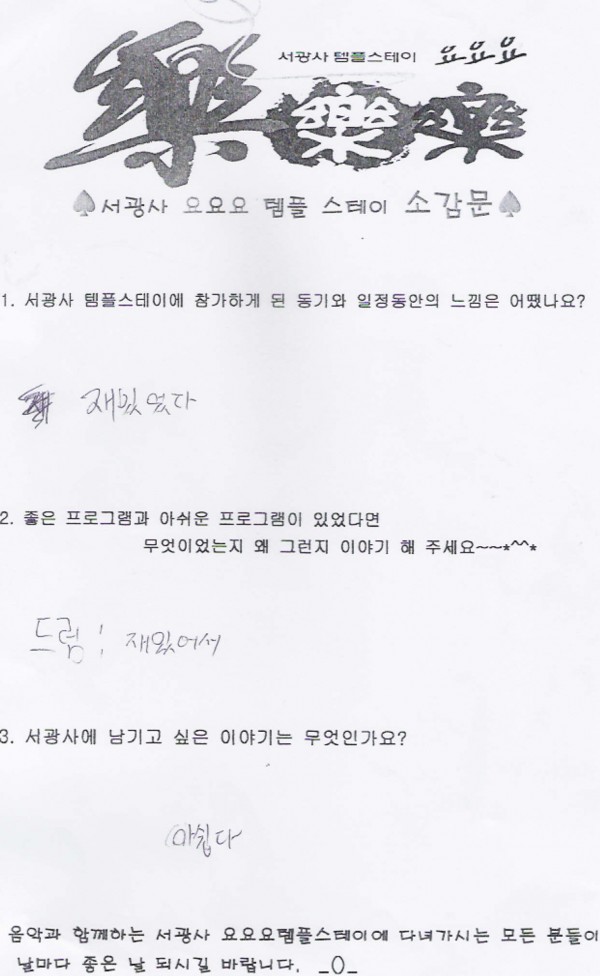 서광사 템플스테이 요요요
樂 樂 樂
♠서광사 요요요 템플 스테이 소감문♠
1. 서광사 템플스테이에 참가하게 된 동기와 일정동안의 느낌은 어땠나요?
재밌었다
2. 좋은 프로그램과 아쉬운 프로그램이 있었다면
무엇이었는지 왜 그런지 이야기 해 주세요~~*^^*
드럼 : 재밌어서
3. 서광사에 남기고 싶은 이야기는 무엇인가요?
아쉽다
음악과 함께하는 서광사 요요요템플스테이에 다녀가시는 모든 분들이
날마다 좋은 날 되시길 바랍니다. _()_